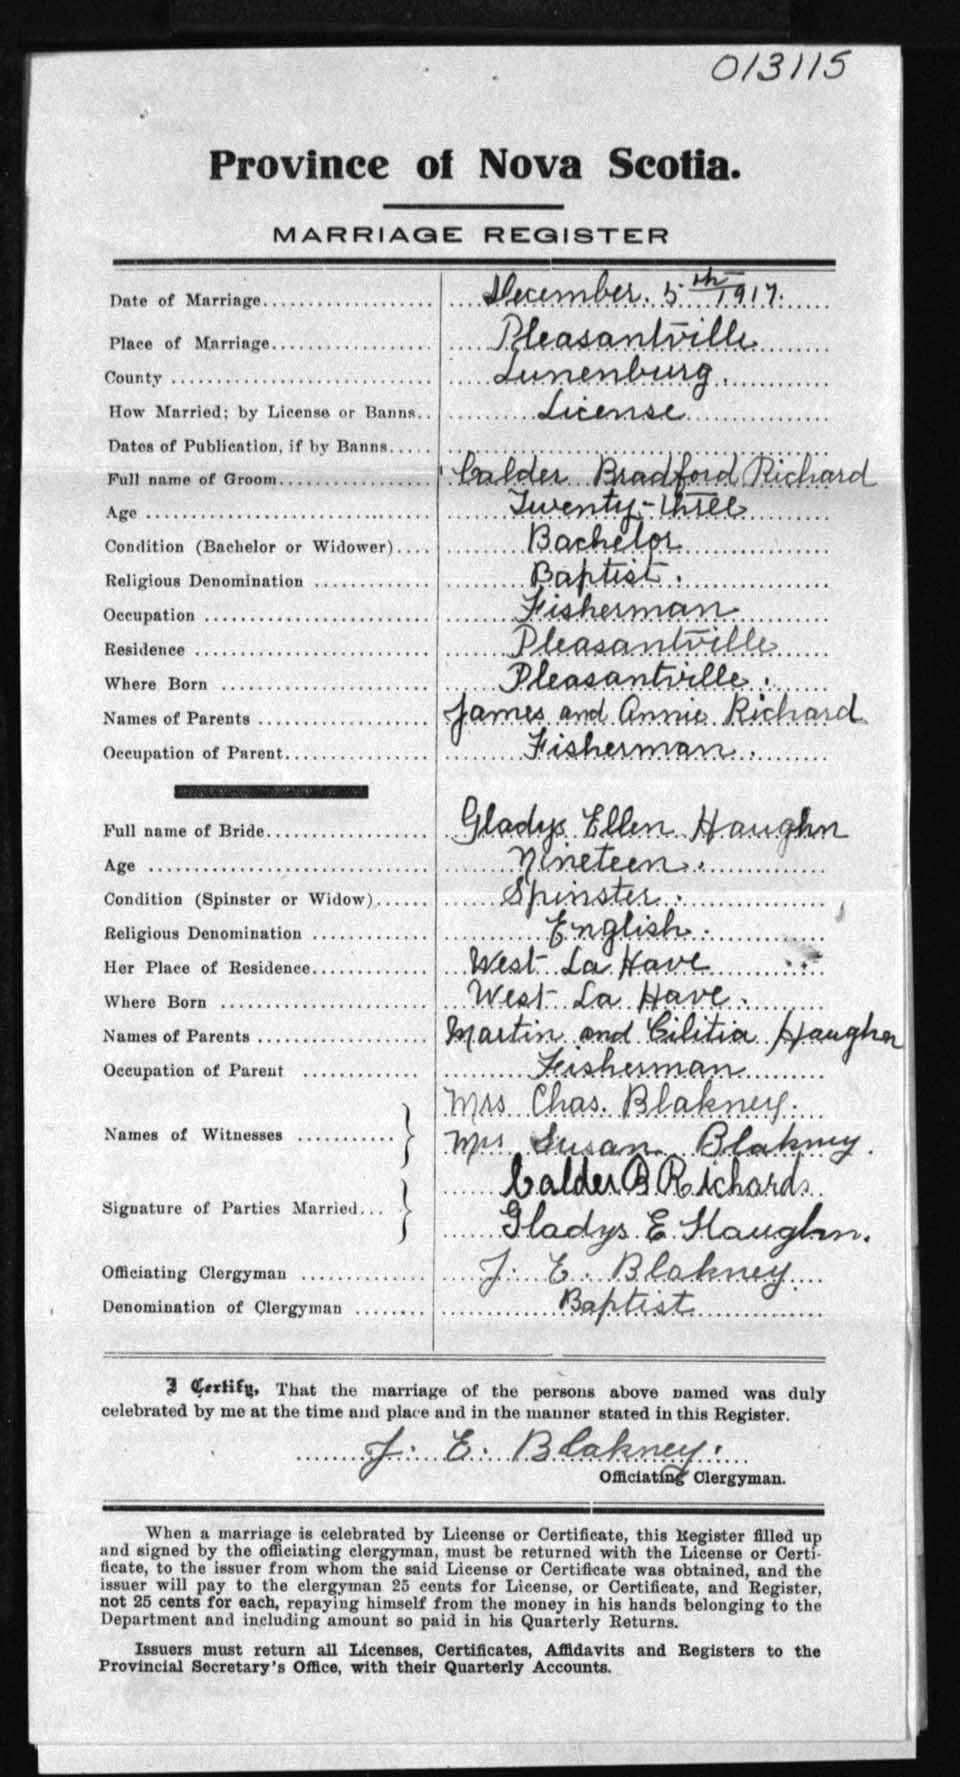 013115
Province of Nova Scotia.
MARRIAGE REGISTER
Date of Marriage.................... December. 5th 1917.
Place of Marriage.................. Pleasantville
County .............................. Lunenburg.
How Married; by License or Banns.. License
Dates of Publication, if by Banns.....
Full name of Groom................. Calder Bradford Richard
Age ................................ Twenty-three
Condition (Bachelor or Widower).... Bachelor
Religious Denomination ............. Baptist.
Occupation .......................... Fisherman
Residence ........................... Pleasantville
Where Born ........................ Pleasantville.
Names of Parents .................... James and Annie Richard
Occupation of Parent................ Fisherman.
Full name of Bride.................. Gladys Ellen Haughn
Age ................................ Nineteen.
Condition (Spinster or Widow)...... Spinster.
Religious Denomination ............. English.
Her Place of Residence............. West La Have
Where Born ........................ West La Have.
Names of Parents .................... Martin and Cilitia Haughn
Occupation of Parent ............. Fisherman
Mrs Chas. Blakney.
Names of Witnesses ...........
Mrs Susan Blakney.
Calder B Richards
Signature of Parties Married...
Gladys E. Haughn.
Officiating Clergyman .............. J. E. Blakney
Denomination of Clergyman ........ Baptist
I Certify, That the marriage of the persons above named was duly
celebrated by me at the time and place and in the manner stated in this Register.
J. E. Blakney.
Officiating Clergyman.
When a marriage is celebrated by License or Certificate, this Register filled up
and signed by the officiating clergyman, must be returned with the License or Certi-
ficate, to the issuer from whom the said License or Certificate was obtained, and the
issuer will pay to the clergyman 25 cents for License, or Certificate, and Register,
not 25 cents for each, repaying himself from the money in his hands belonging to the
Department and including amount so paid in his Quarterly Returns.
Issuers must return all Licenses, Certificates, Affidavits and Registers to the
Provincial Secretary's Office, with their Quarterly Accounts.